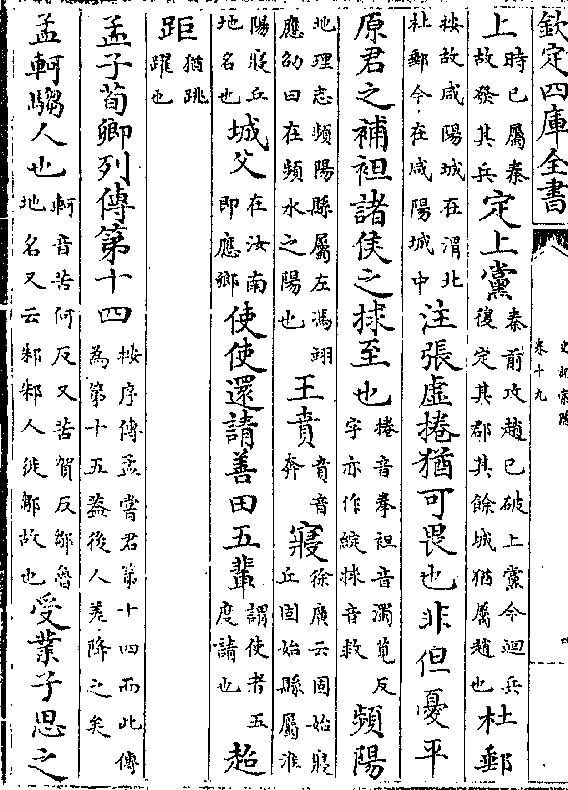 欽定四庫全書
史記索隱
卷十九
上時已屬秦故發其兵定上黨秦前攻趙已破上黨今迴兵復定其郡其餘城猶屬趙也杜郵
按故咸陽城在渭北杜郵今在咸陽城中注張虛捲猶可畏也非但憂平
原君之補袒諸侯之捄至也捲音拳袒音濁莧反字亦作綻捄音救頻陽
地理志頻陽縣屬左馮翊應劭曰在頻水之陽也王賁賁音奔寢徐廣云固始寢丘固始縣屬淮
陽寢丘地名也城父在汝南即應鄉使使還請善田五輩謂使者五度請也超
距猶跳躍也
孟子荀卿列傳第十四按序傳孟嘗君第十四而此傳為第十五蓋後人差降之矣
孟軻騶人也軻音苦何反又苦賀反鄒魯地名又云邾邾人徙鄒故也受業子思之